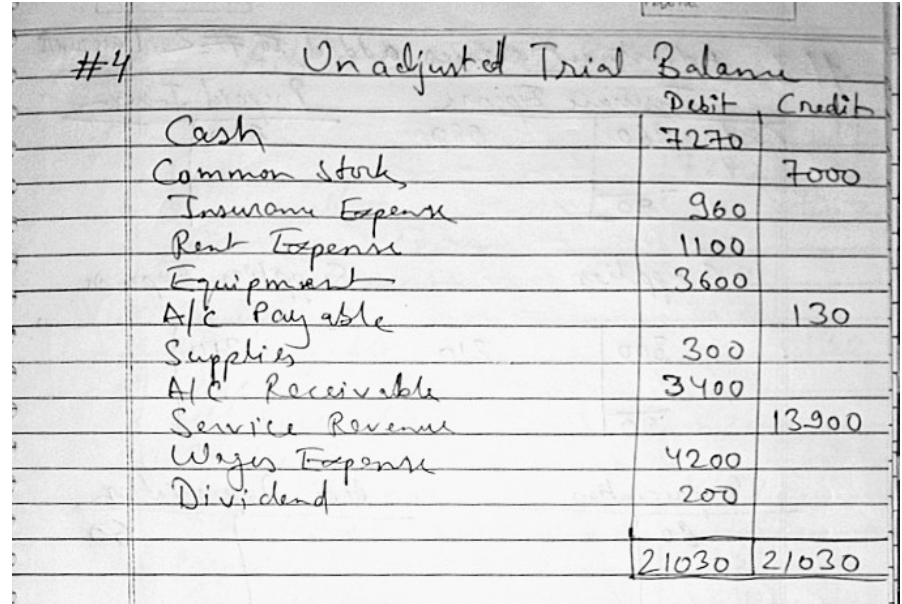 #4 Unadjusted Trial Balance
Debit Credit
Cash 7270
Common Stock, 7000
Insurance Expense 960
Rent Expense 1100
Equipment 3600
A/c Payable 130
Supplies 300
A/C Receivable 3400
Service Revenue 13900
Wages Expense 4200
Dividend 200
21030 21030